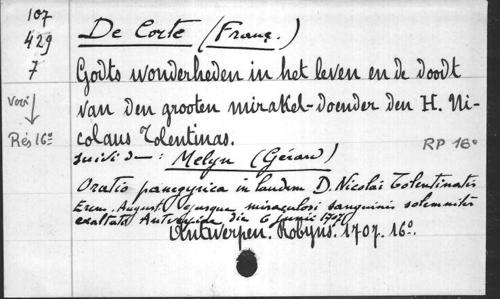 107
429
7
De Corte (Franç.)
Godts wonderheden in het leven en de doodt
van den grooten mirakel-doender den H. Ni-
colaus Tolentinas.
voir
Rés 16º
RP 16º
suivi de : Melyn (Gérard)
Oratio panegyrica in laudem D. Nicolai Tolentinatis
Erem. August. ejusque miraculosi sanguinis solemniter
exaltata Antverpiæ die 6 junii 1707
Antwerpen. Robyns. 1707. 16º.